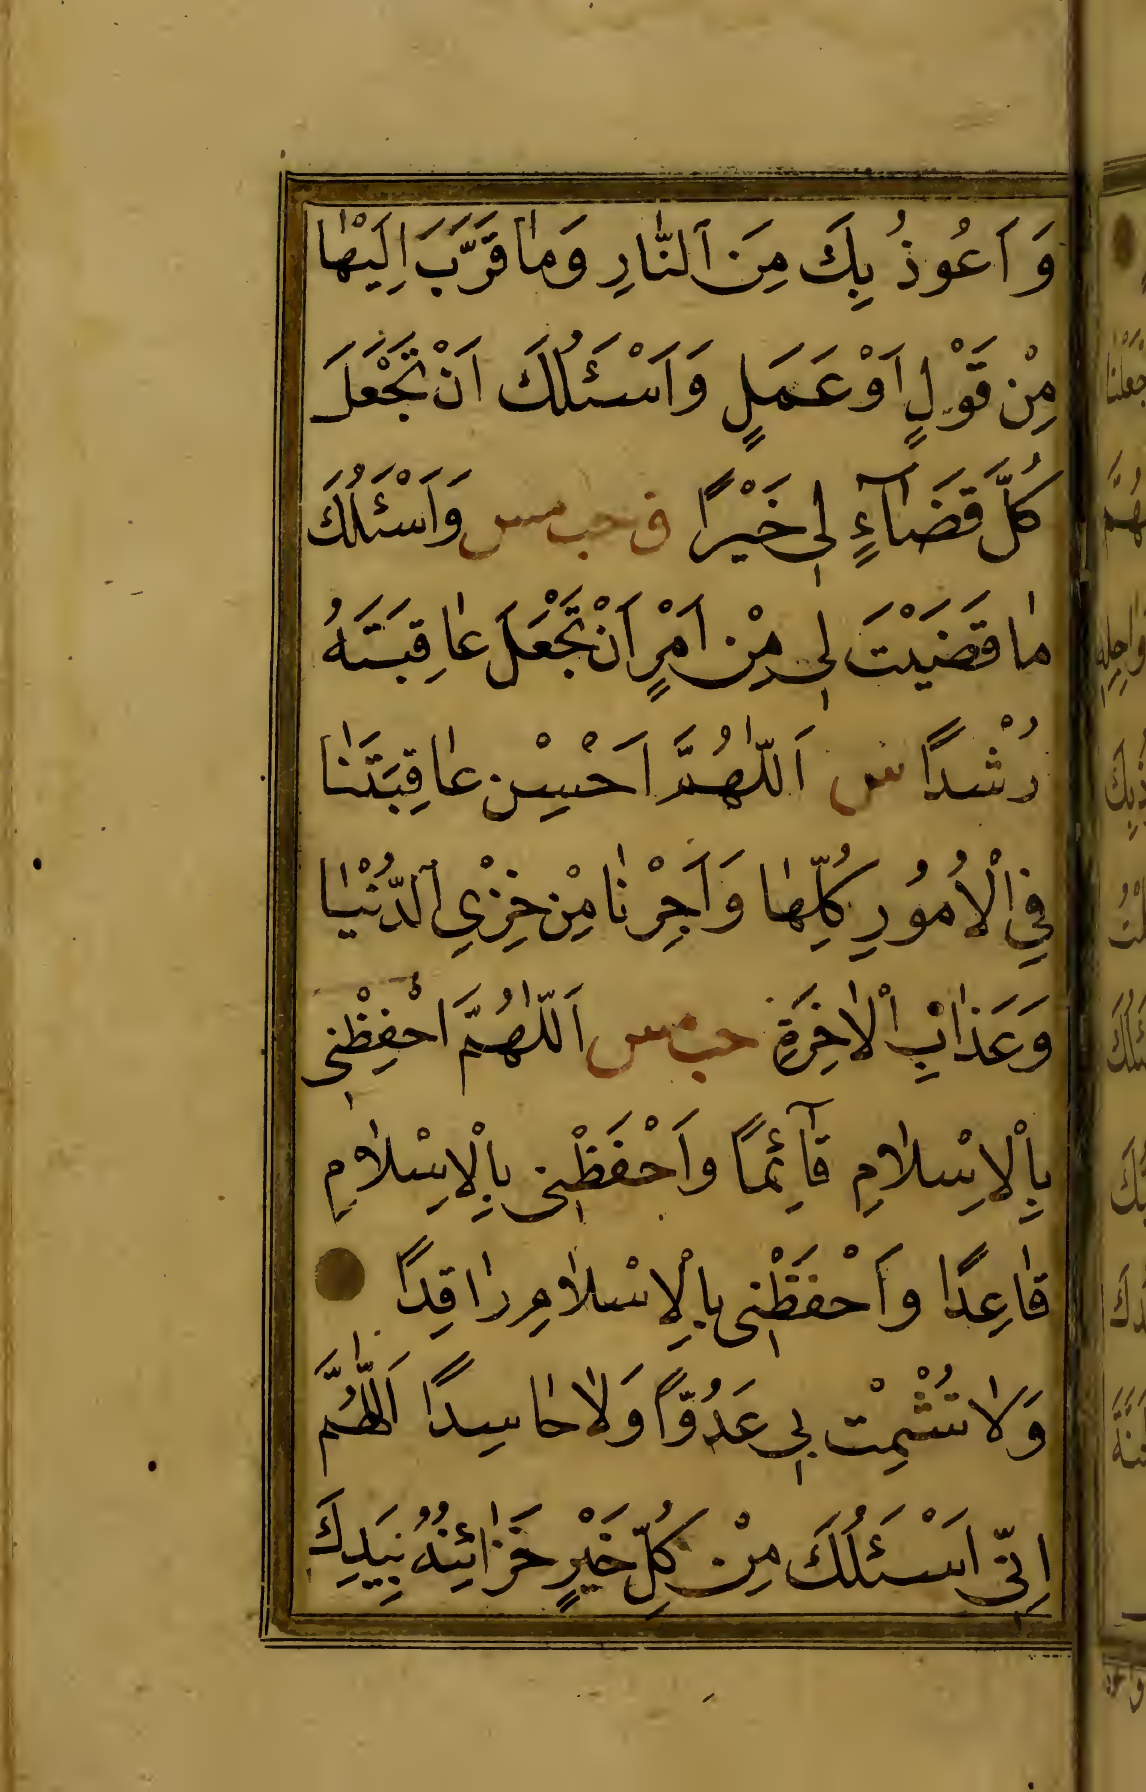 وَاَعُوذُ بِكَ مِنَ النَّارِ وَمٰا قَرَّبَ اِلَيْهٰا
مِنْ قَوْلٍ اَوْ عَمَلٍ وَاَسْئَلُكَ اَنْ تَجْعَلَ
كُلَّ قَضٰآءٍ لٖى خَيْرًا ق حب مس وَاَسْئَلُكَ
مٰا قَضَيْتَ لٖى مِنْ اَمْرٍ اَنْ تَجْعَلَ عٰاقِبَتَهُ
رُشْدًا مس اَللّٰهُمَّ اَحْسِنْ عٰاقِبَتَنٰا
فِى الْاُمُورِ كُلِّهٰا وَاَجِرْنٰا مِنْ خِزْىِ الدُّنْيٰا
وَعَذٰابِ الْاٰخِرَةِ حب مس اَللّٰهُمَّ احْفِظْنٖى
بِاْلاِسْلٰامِ قٰٓائِمًا وَاَحْفَظْنٖى بِاْلاِسْلٰامِ
قٰاعِدًا وَاَحْفَظْنٖى بِالْاِسْلٰامِ رٰاقِدًا
وَلٰا تُشْمِتْ بٖى عَدُوًّا وَلٰا حٰاسِدًا اَللّٰهُمَّ
اِنّٖى اَسْئَلُكَ مِنْ كُلِّ خَيْرٍ خَزٰائِنُهُ بِيَدِكَ